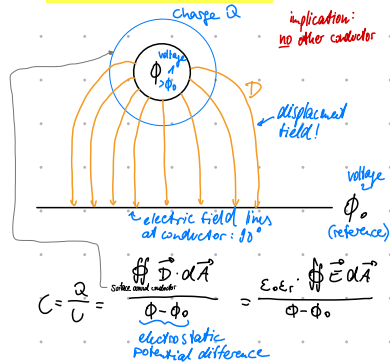 charge Q
implication:
no other conductor
voltage
ϕ₁
>ϕ₀
D
displacment
field!
voltage
ϕ₀
(reference)
electric field lines
at conductor: 90°
C = Q/U = ∯ D⃗ · dA⃗ / (ϕ - ϕ₀) = ε₀εᵣ · ∯ E⃗ dA⃗ / (ϕ - ϕ₀)
Surface around conductor
electrostatic
potential difference